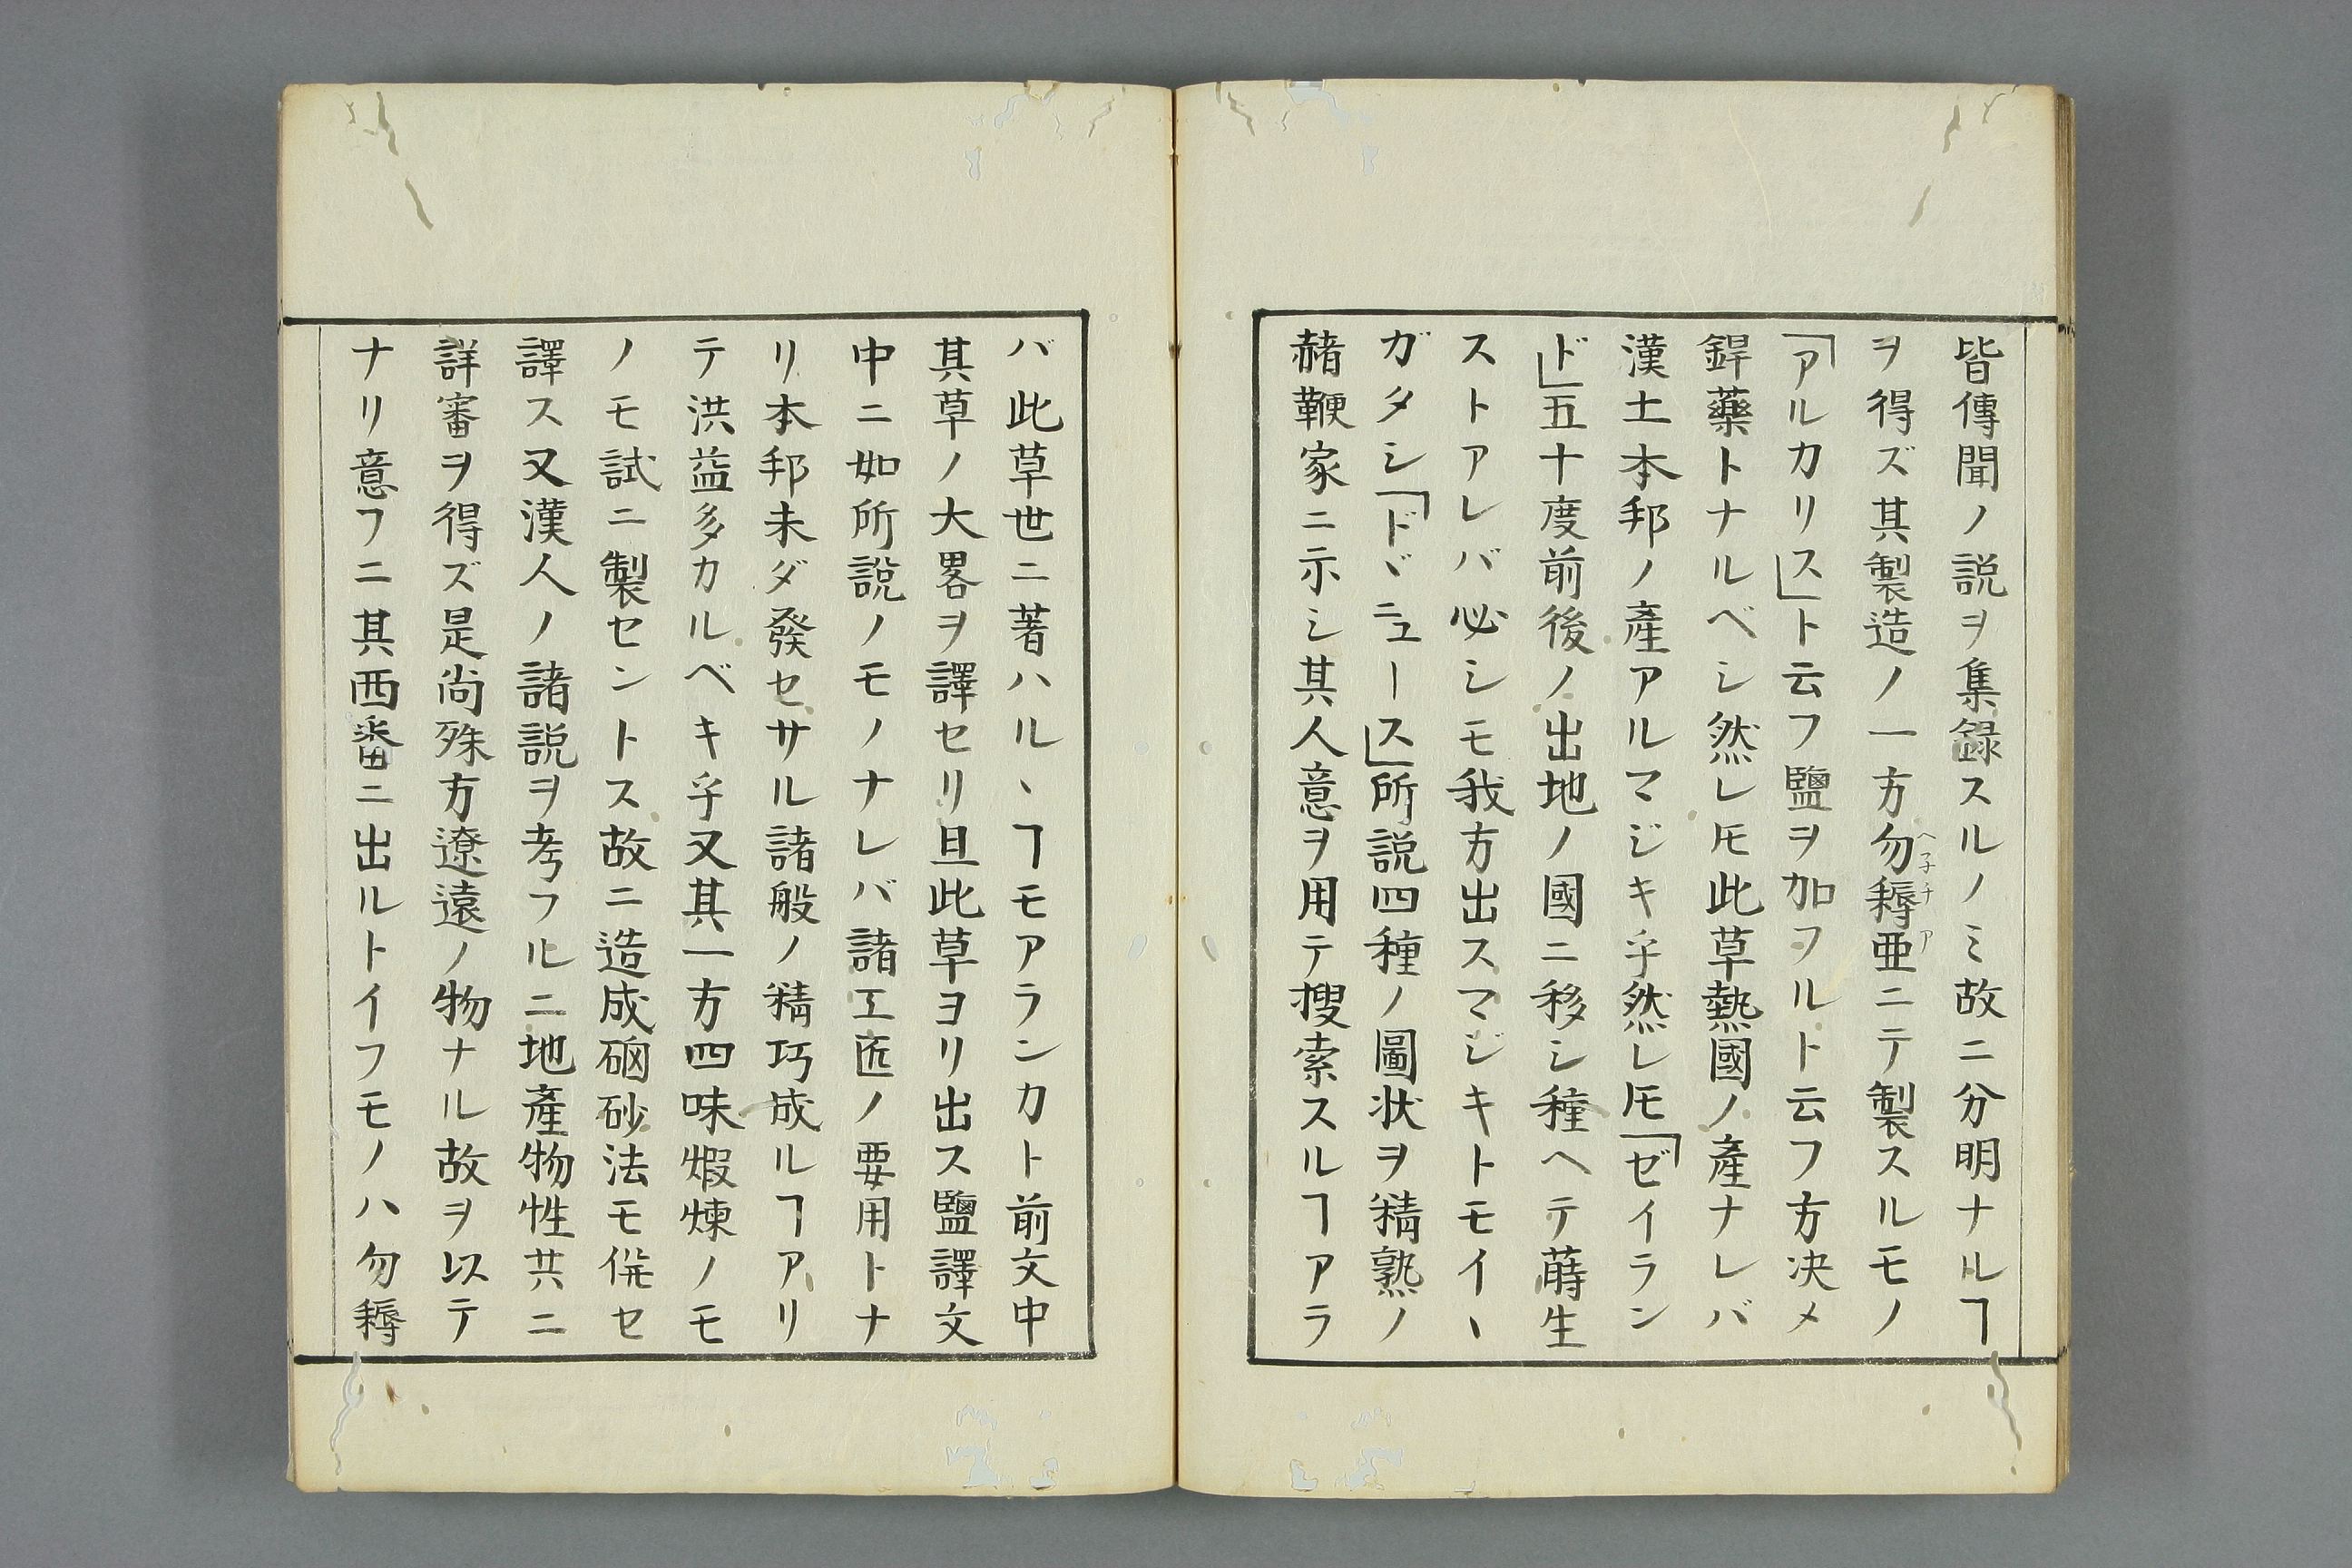 皆傳聞ノ説ヲ集録スルノミ故ニ分明ナルヿ
ヲ得ズ其製造ノ一方勿耨亜ニテ製スルモノ
ヘ子チア
「アルカリス」ト云フ鹽ヲ加フルト云フ方决メ
銲藥トナルベシ然レ𪜈此草熱國ノ產ナレバ
漢土本邦ノ產アルマジキ乎然レ𪜈「ゼイラン
ド」五十度前後ノ出地ノ國ニ移シ種ヘテ蒔生
ストアレバ必シモ我方出スマジキトモイヽ
ガタシ「ドヾニュース」所説四種ノ圖状ヲ精熟ノ
赭鞭家ニ示シ其人意ヲ用テ搜索スルヿアラ
バ此草世ニ著ハルヽヿモアランカト前文中
其草ノ大畧ヲ譯セリ且此草ヨリ出ス鹽譯文
中ニ如所説ノモノナレバ諸工匠ノ要用トナ
リ本邦未ダ發セサル諸般ノ精巧成ルヿアリ
テ洪益多カルベキ乎又其一方四味煅煉ノモ
ノモ試ニ製セントス故ニ造成硇砂法モ併セ
譯ス又漢人ノ諸説ヲ考フルニ地產物性共ニ
詳審ヲ得ズ是尚殊方遼遠ノ物ナル故ヲ以テ
ナリ意フニ其西番ニ出ルトイフモノハ勿耨